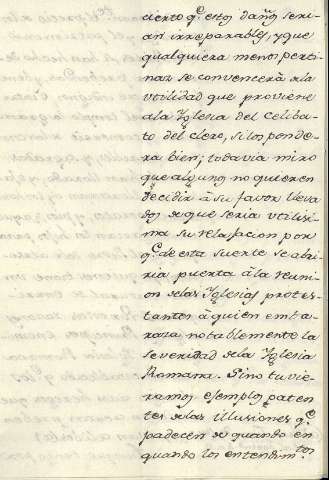 cierto q.e estos daños seri-
an irreparables, y que
qualquiera menos perti-
naz se convencerá de la
utilidad que proviene
a la Yglesia del Celiba-
to del clero, si los ponde-
ra bien; todavia miro
que algunos no quieren
decidir à su favor lleva-
dos de que seria utilisi-
ma su relajacion por
q.e de esta suerte se abri-
ria puerta à la reuni-
on de las Yglesias protes-
tantes à quien emba-
raza notablemente la
severidad de la Yglesia
Romana. Sino tuvie-
ramos ejemplos paten-
tes de las illusiones q.e
padecen de quando en
quando los entendim.tos